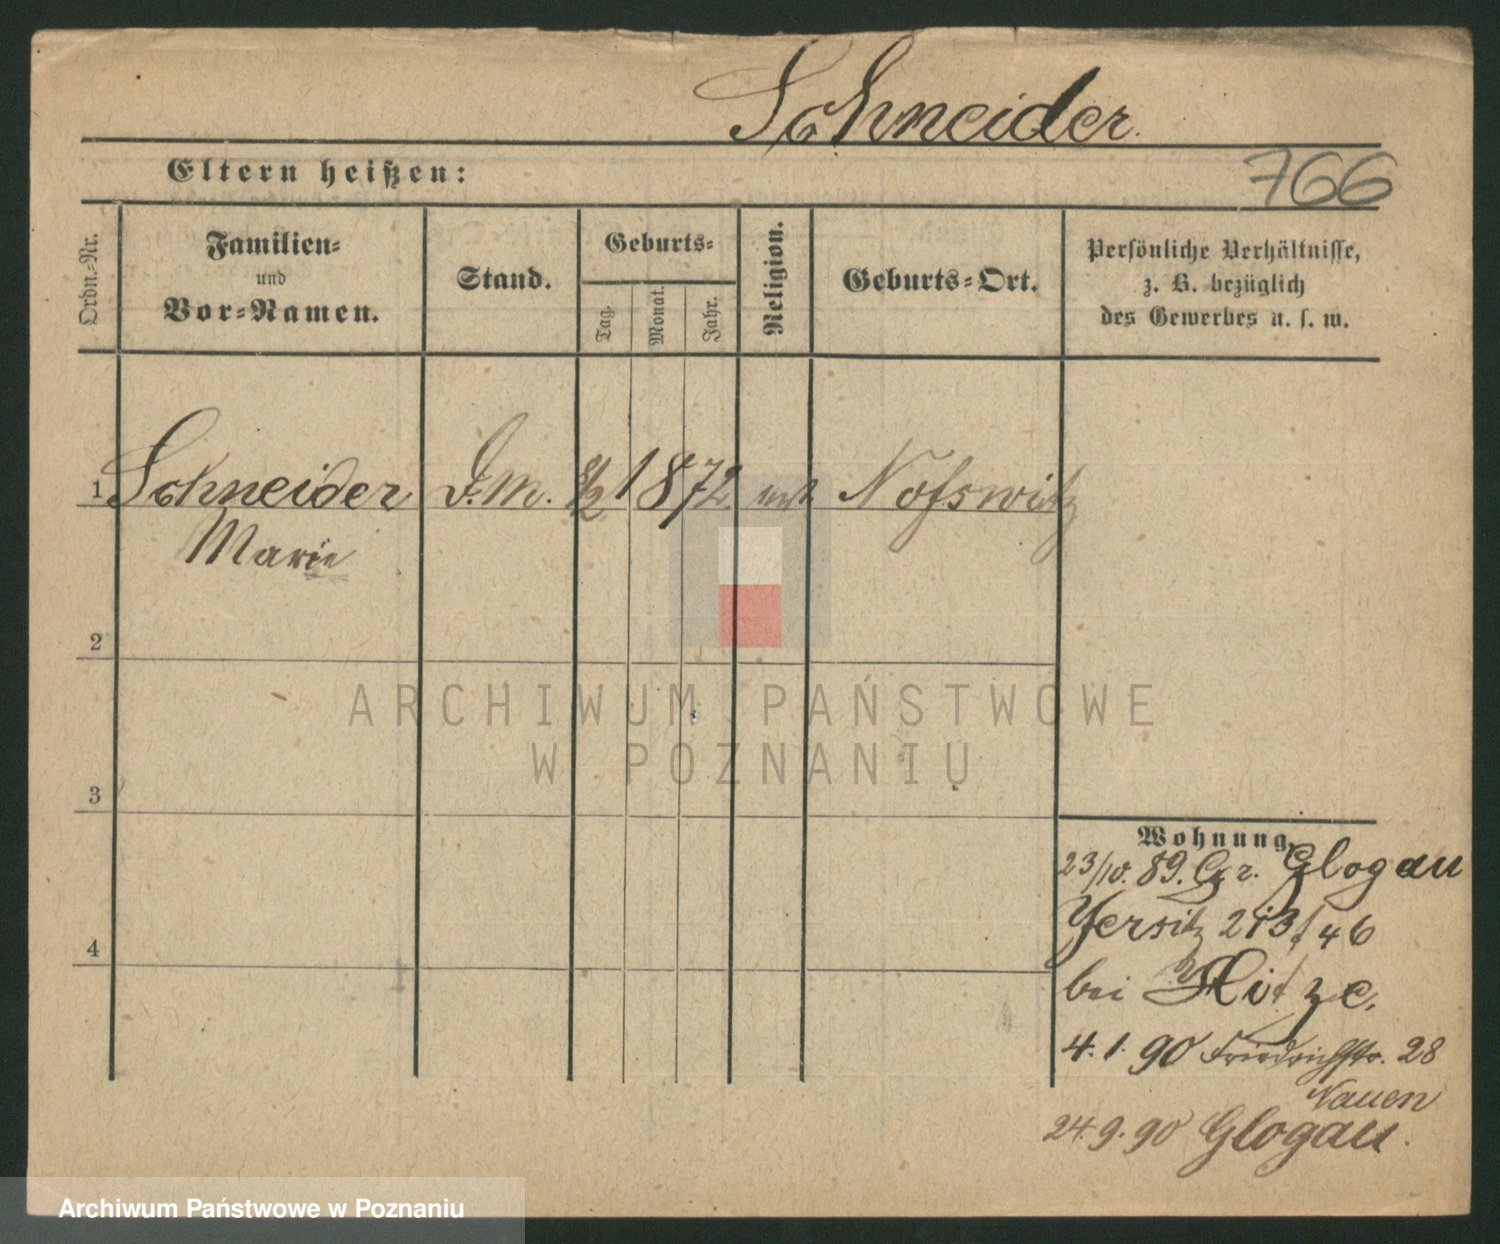 Schneider.
Eltern heißen:
766
Ordn.-Nr.
Familien-
und
Vor-Namen.
Stand.
Geburts-
Tag.
Monat.
Jahr.
Religion.
Geburts-Ort.
Persönliche Verhältnisse,
z. B. bezüglich
des Gewerbes u. s. w.
1 Schneider D.M. 1872
Marie
2
3
4
ARCHIWUM PAŃSTWOWE
W POZNANIU
Wohnung.
23/10. 89. Gr. Glogau
Jersitz 213/46
bei Hitze.
4.1.90 Friedrichstr. 28
Nauen
24.9.90 Glogau.
Archiwum Państwowe w Poznaniu